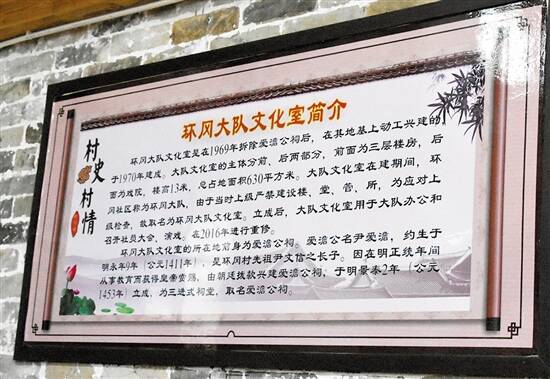 环冈大队文化室简介
村史
村情
环冈大队文化室是在1969年拆除爱澹公祠后，在其地基上动工兴建的
于1970年建成。大队文化室的主体分前、后两部分，前面为三层楼房，后
面为戏院，楼高13米，总占地面积630平方米。大队文化室在建期间，环
冈社区称为环冈大队，由于当时上级严禁建设楼、堂、营、所，为应对上
级检查，故取名为环冈大队文化室。立成后，大队文化室用于大队办公和
召开社员大会、演戏。在2016年进行重修。
环冈大队文化室的所在地前身为爱澹公祠。爱澹公名尹爱澹，约生于
明永年9年（公元1411年），是环冈村先祖尹文信之长子。因在明正统年间
从事教育而获得皇帝赏赐，由朝廷拨款兴建爱澹公祠，于明景泰2年（公元
1453年）立成，为三进式祠堂，取名爱澹公祠。